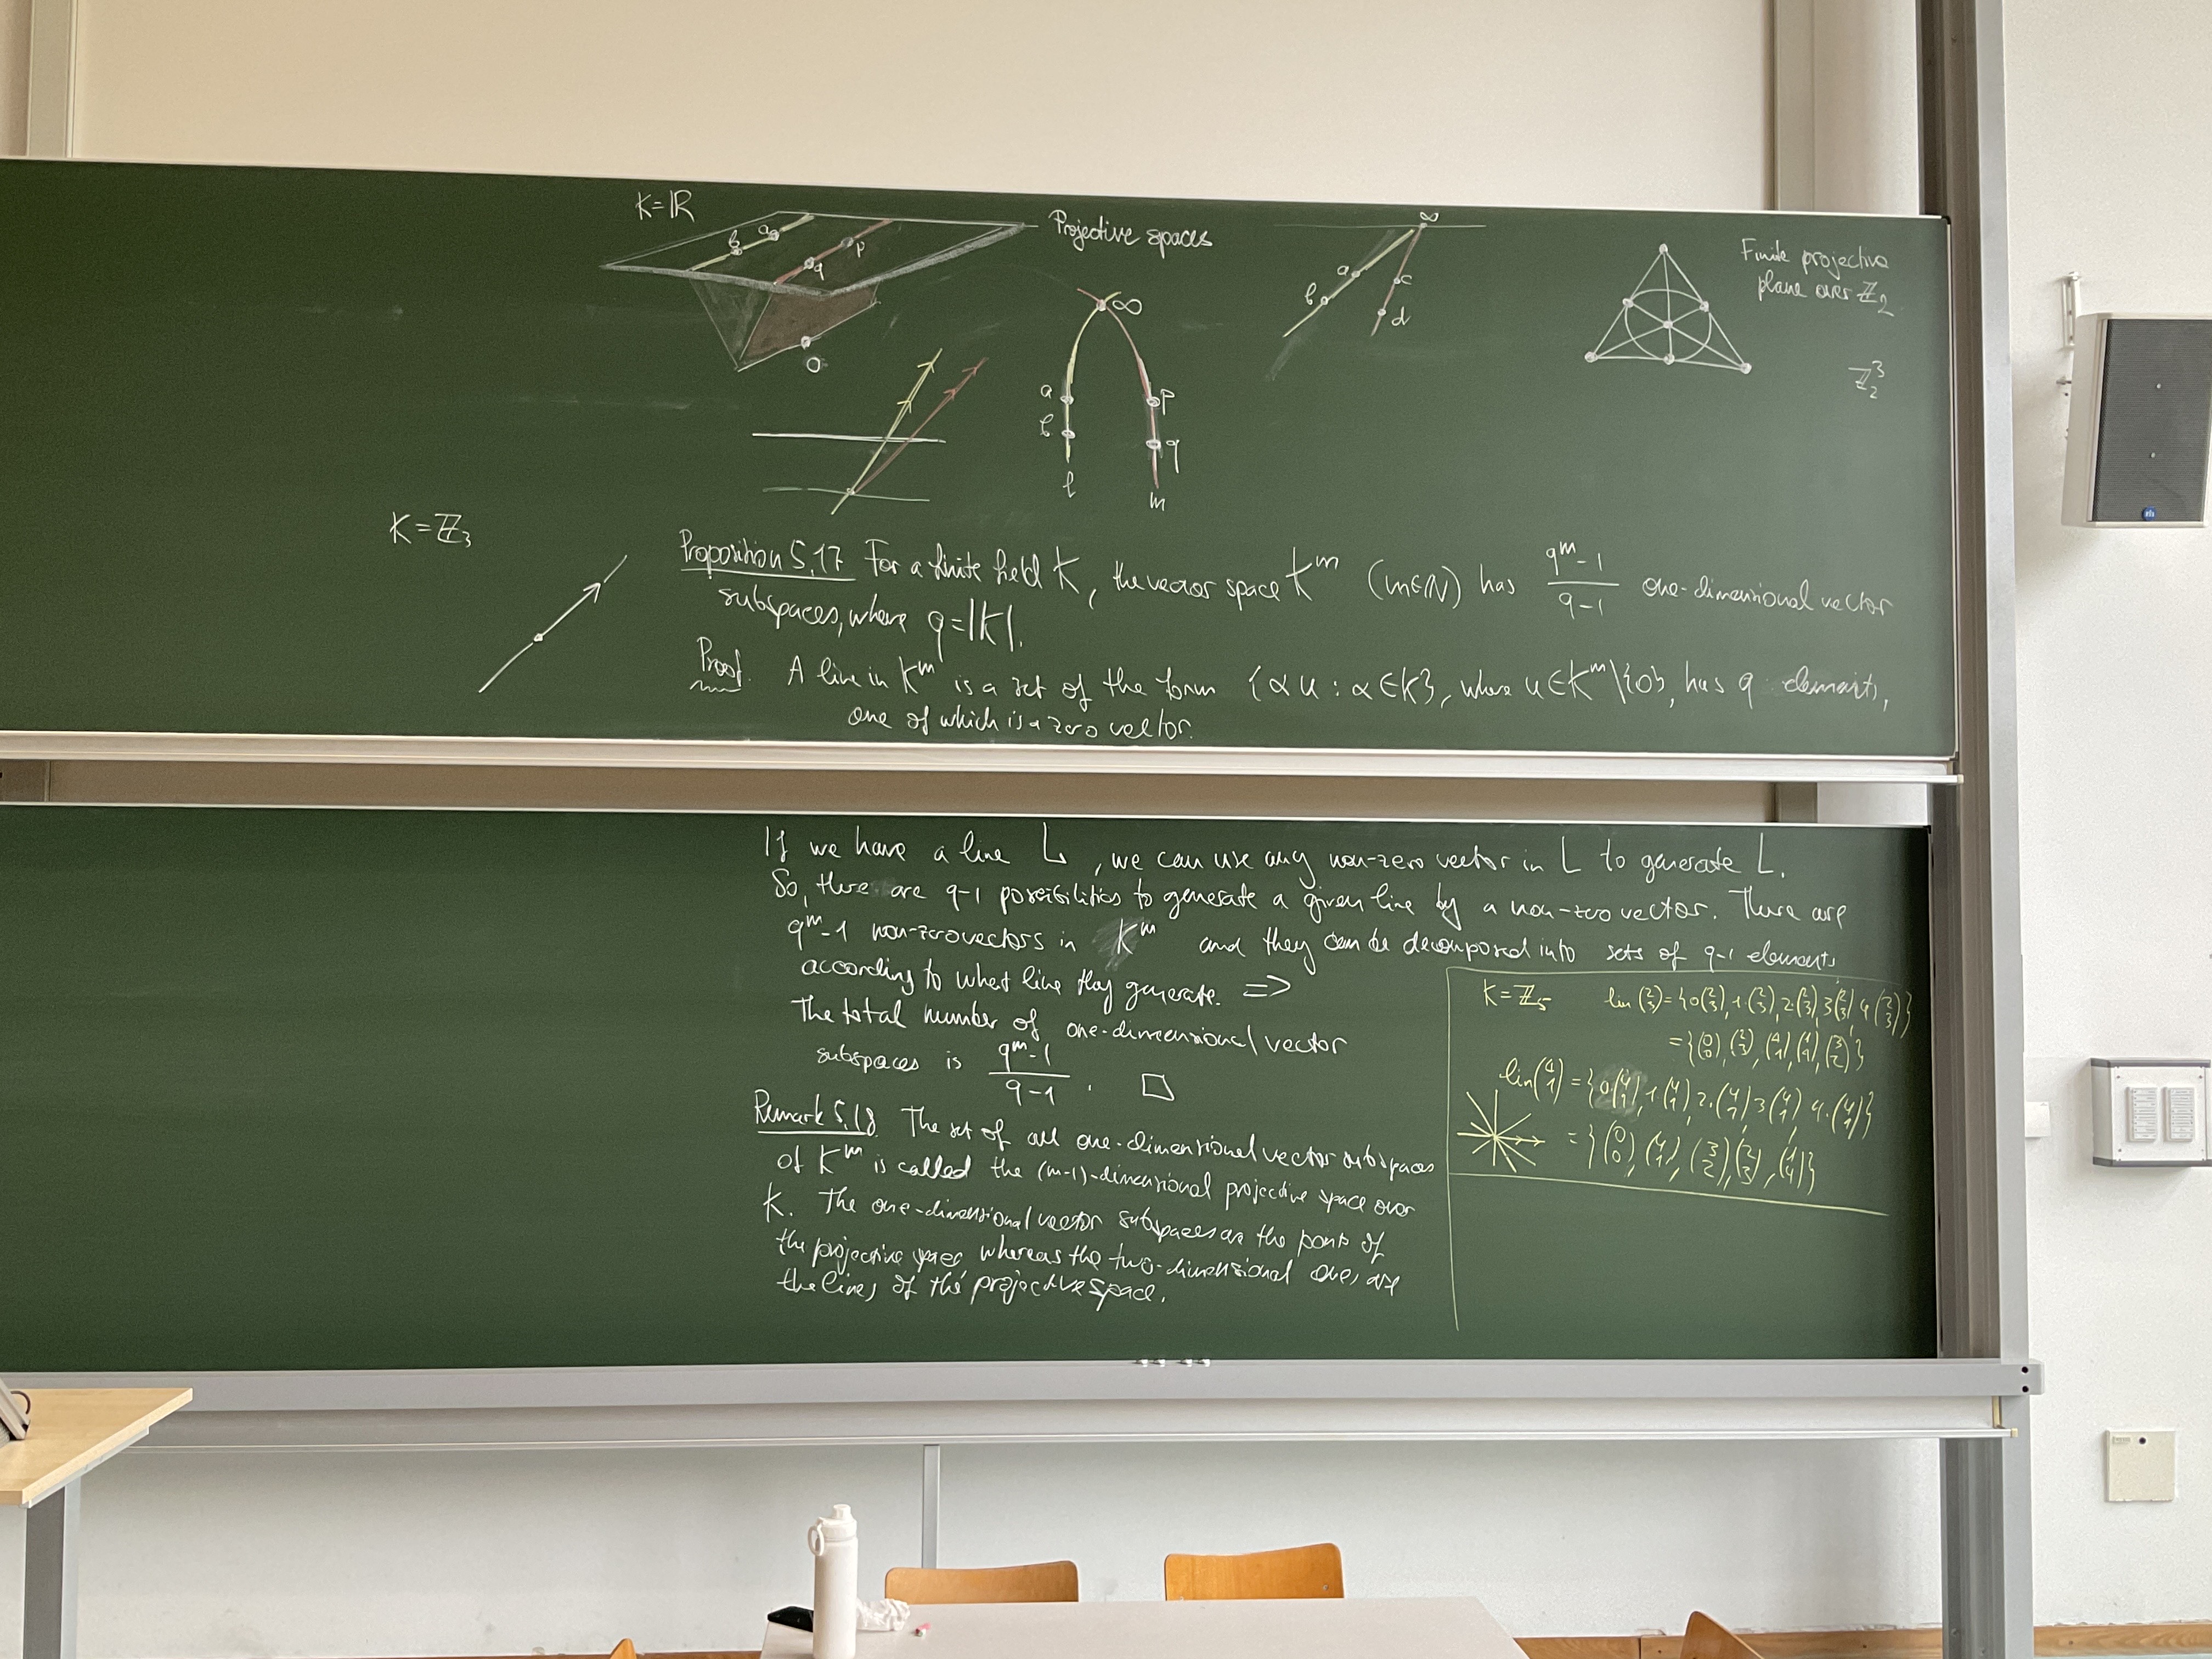 K=ℝ
b a p q
O
Projective spaces
∞
a p
b q
l m
∞
a c
b d
Finite projective
plane over ℤ₂
ℤ₂³
K=ℤ₃
Proposition 5.17 For a finite field K, the vector space Kᵐ (m∈ℕ) has (qᵐ-1)/(q-1) one-dimensional vector
subspaces, where q=|K|.
Proof. A line in Kᵐ is a set of the form {αu : α∈K}, where u∈Kᵐ\{0}, has q elements,
one of which is a zero vector.
If we have a line L, we can use any non-zero vector in L to generate L.
So, there are q-1 possibilities to generate a given line by a non-zero vector. There are
qᵐ-1 non-zero vectors in Kᵐ and they can be decomposed into sets of q-1 elements
according to what line they generate. ⇒
The total number of one-dimensional vector
subspaces is (qᵐ-1)/(q-1). □
Remark 5.18. The set of all one-dimensional vector subspaces
of Kᵐ is called the (m-1)-dimensional projective space over
K. The one-dimensional vector subspaces are the points of
the projective space, whereas the two-dimensional ones are
the lines of the projective space.
K=ℤ₅ lin(2 3)={0(2 3), 1·(2 3), 2·(2 3), 3(2 3), 4(2 3)}
={(0 0), (2 3), (4 1), (1 4), (3 2)}
lin(4 1)={0·(4 1), 1·(4 1), 2·(4 1), 3(4 1), 4·(4 1)}
={(0 0), (4 1), (3 2), (2 3), (1 4)}